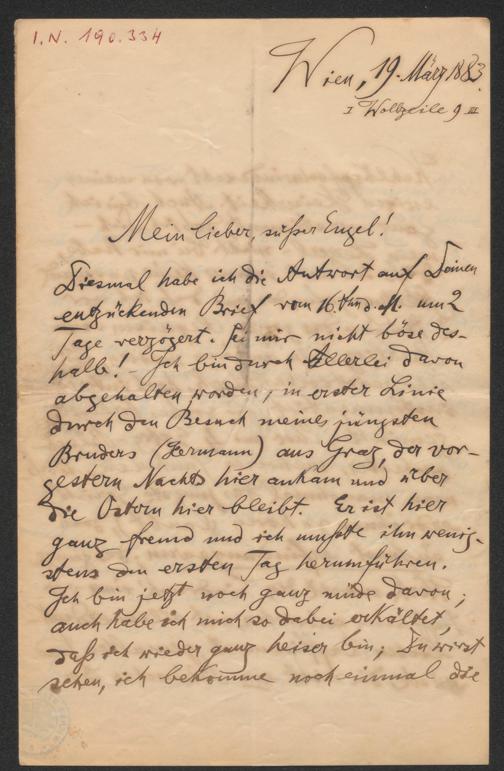 I.N. 190.334
Wien, 19. März 1883.
I Wollzeile 9 III
Mein lieber, süßer Engel!
Diesmal habe ich die Antwort auf Deinen
entzückenden Brief vom 16. d. M. um 2
Tage verzögert. Sei mir nicht böse des-
halb! – Ich bin durch Allerlei davon
abgehalten worden, in erster Linie
durch den Besuch meines jüngsten
Bruders (Hermann) aus Graz, der vor-
gestern Nachts hier ankam und über
die Ostern hier bleibt. Er ist hier
ganz fremd und ich mußte ihn wenig-
stens den ersten Tag herumführen.
Ich bin jetzt noch ganz müde davon;
auch habe ich mich so dabei erkältet,
daß ich wieder ganz heiser bin; Du wirst
sehen, ich bekomme noch einmal die